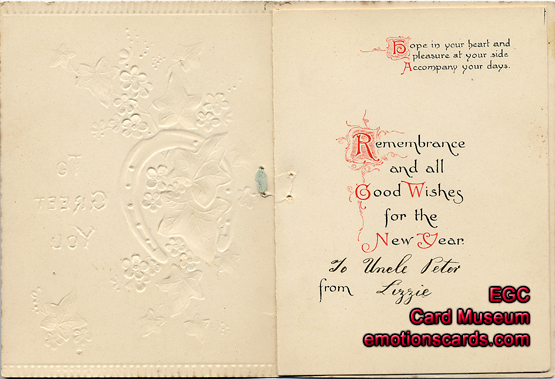 TO
GREET
YOU
Hope in your heart and
pleasure at your side
Accompany your days.
Remembrance
and all
Good Wishes
for the
New Year.
To Uncle Peter
from Lizzie
EGC
Card Museum
emotionscards.com